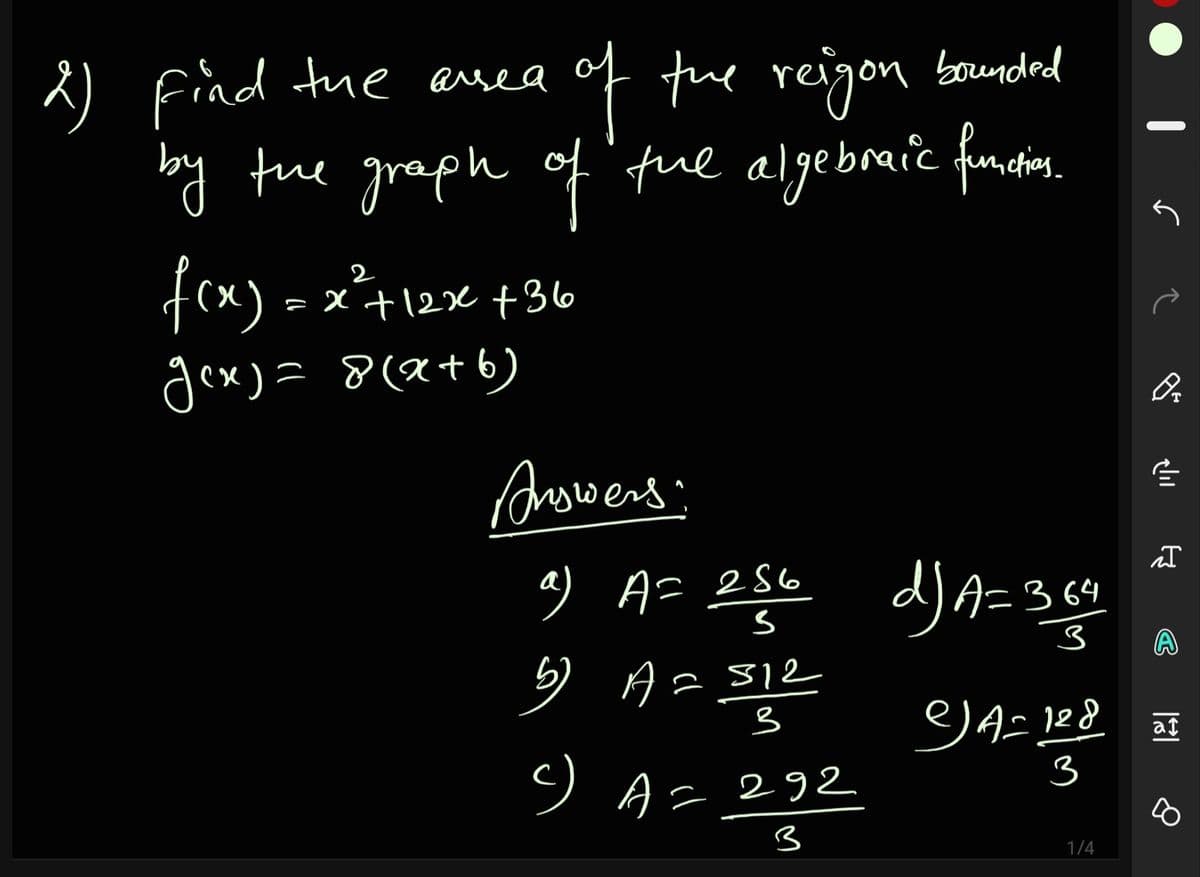 2) Find the area of the reigon bounded
by the graph of the algebraic functions.
f(x) = x²+12x+36
g(x) = 8(x+6)
Answers:
a) A= 256/5
b) A = 512/3
c) A = 292/3
d) A= 364/3
e) A= 128/3
1/4